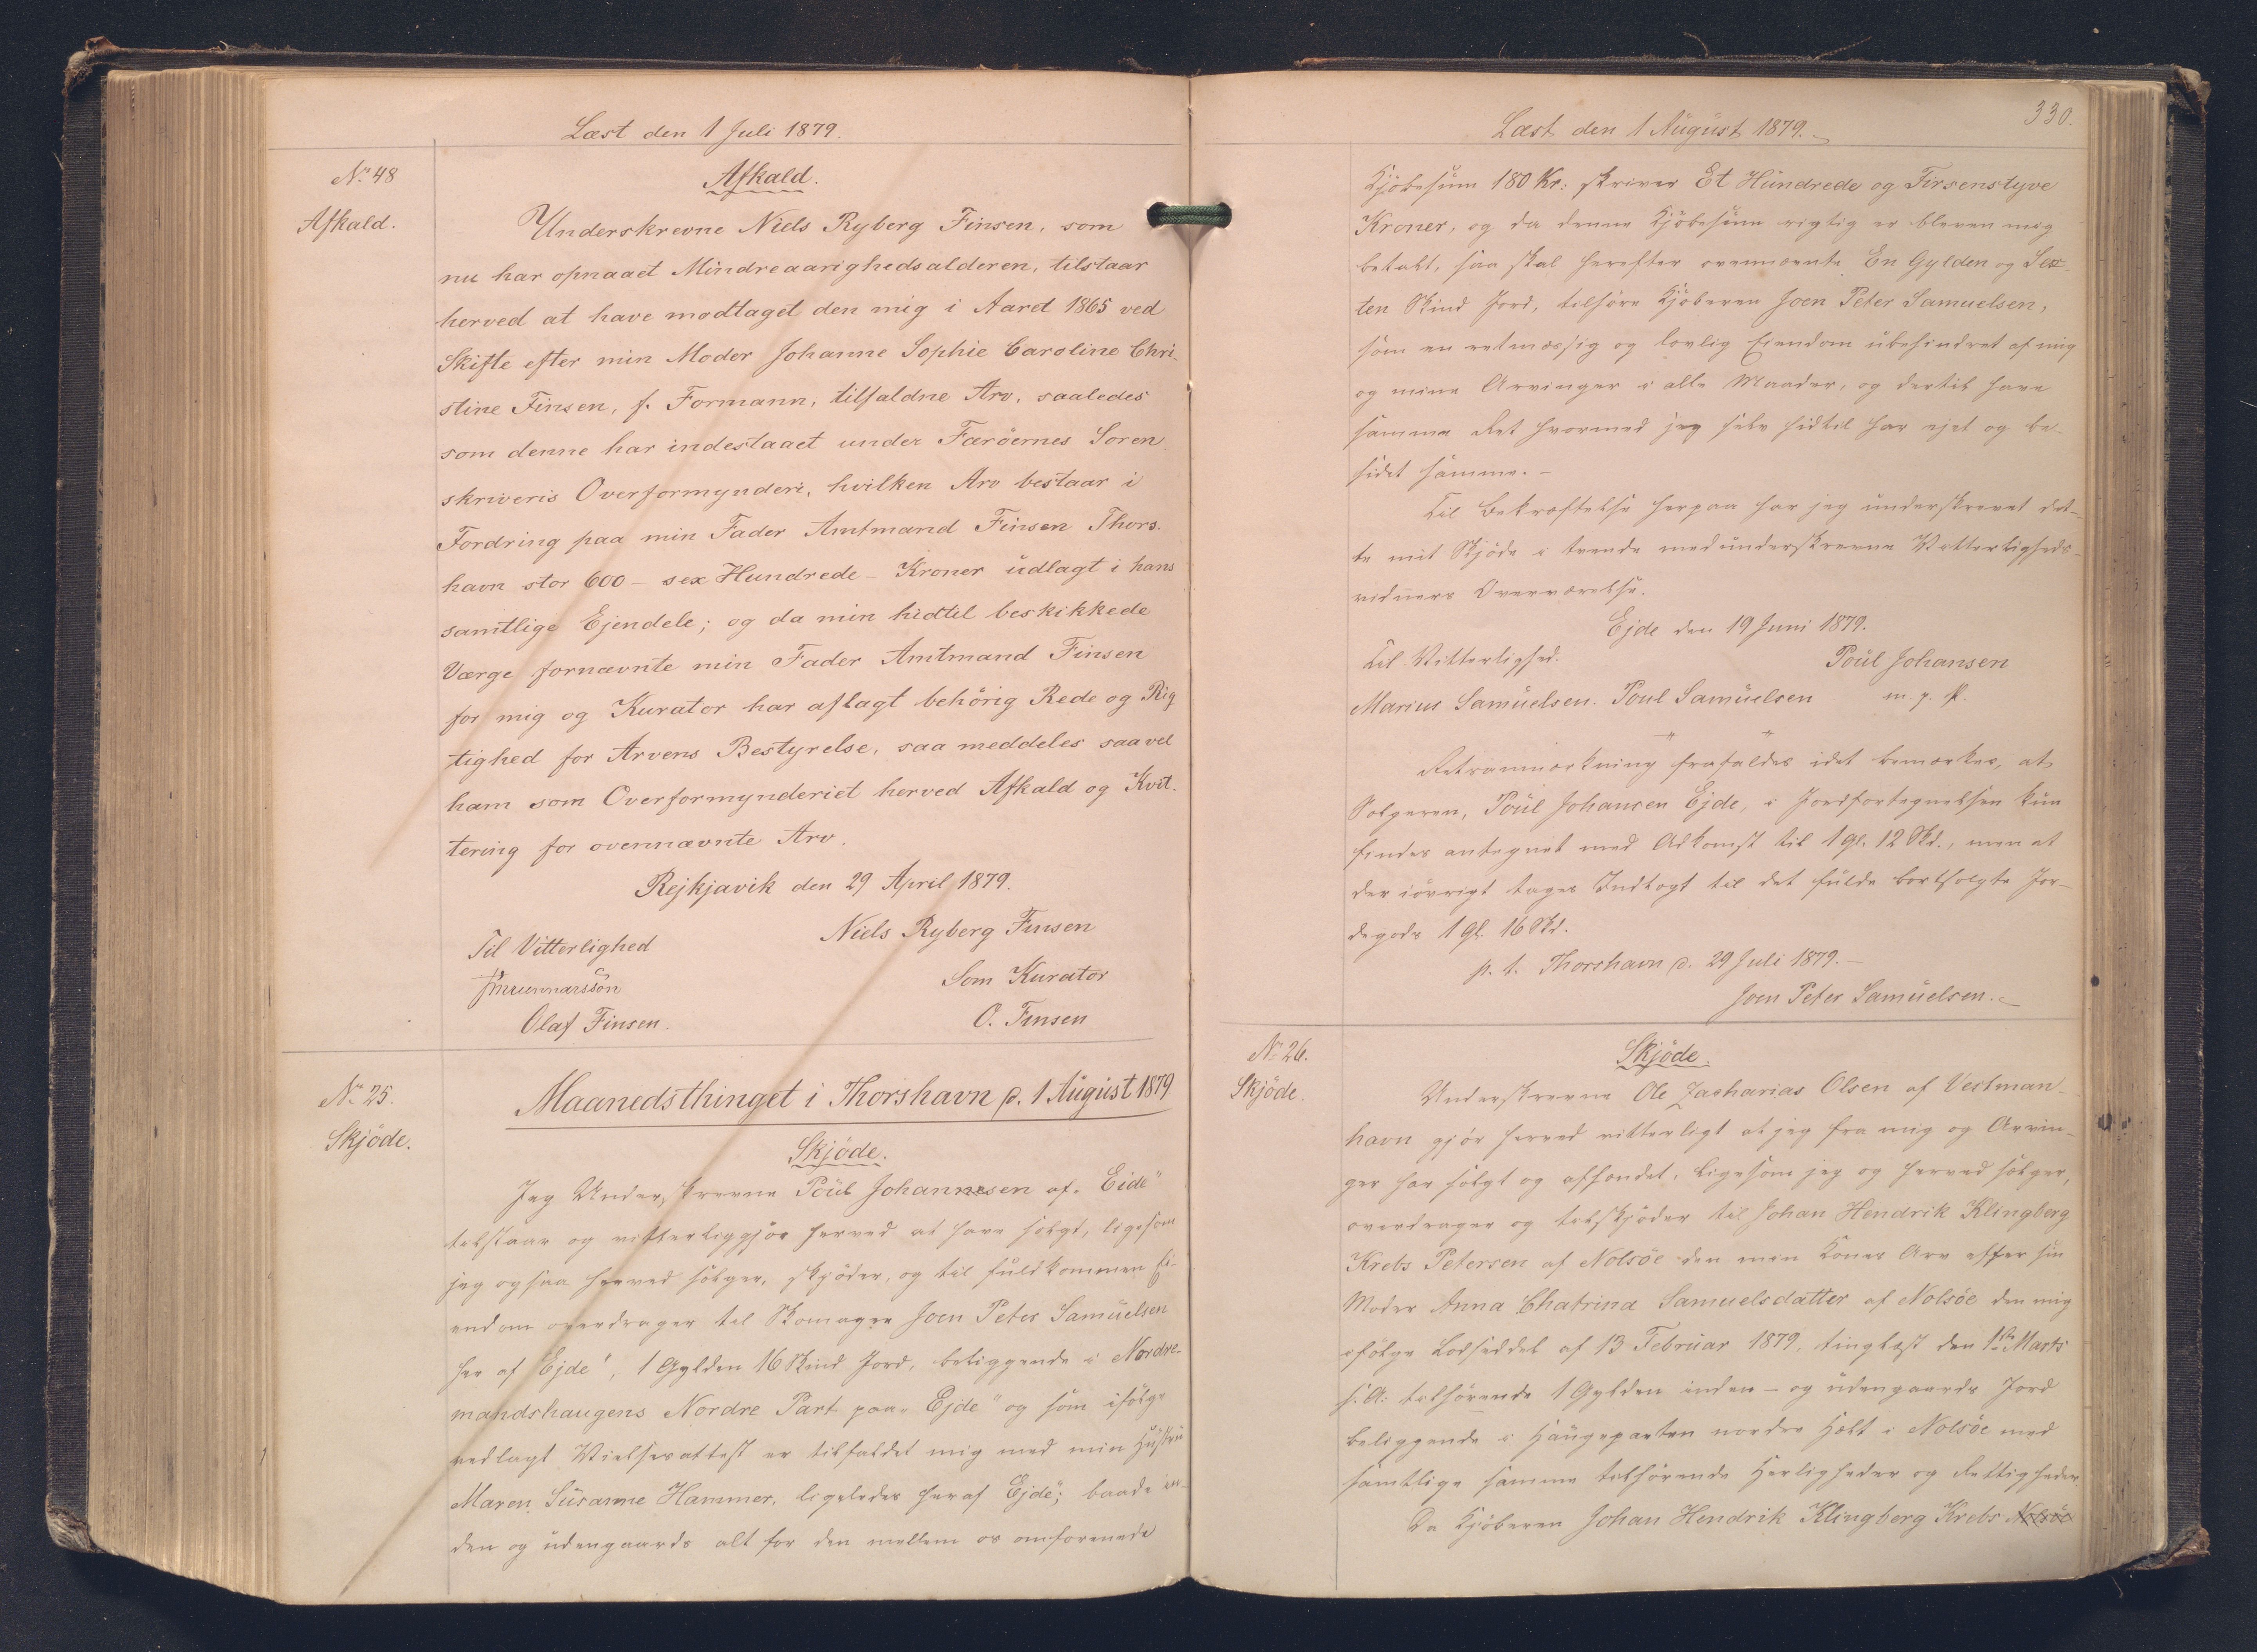 Læst den 1 Juli 1879.
No 48
Afkald.
Afkald.
Underskrevne Niels Ryberg Finsen, som
nu har opnaaet Mindreaarighedsalderen, tilstaar
herved at have modtaget den mig i Aaret 1865 ved
Skifte efter min Moder Johanne Sophie Caroline Chri-
stine Finsen, f. Formann, tilfaldne Arv, saaledes
som denne har indestaaet under Færöernes Soren
skriveris Overformynderi, hvilken Arv bestaar i
Fordring paa min Fader Amtmand Finsen Thors-
havn stor 600 - sex Hundrede - Kroner udlagt i hans
samtlige Ejendele; og da min hidtil beskikkede
Værge fornævnte min Fader Amtmand Finsen
for mig og Kurator har aflagt behörig Rede og Rig
tighed for Arvens Bestyrelse, saa meddeles saavel
ham som Overformynderiet herved Afkald og Kvit-
tering for ovennævnte Arv.
Rejkjavik den 29 April 1879.
Til Vitterlighed
Niels Ryberg Finsen
Som Kurator
Olaf Finsen.
O. Finsen
No 25.
Skjöde.
Maanedsthinget i Thorshavn d. 1 August 1879
Skjöde.
Jeg Underskrevne Poul Johannesen af "Eide"
tilstaar og vitterliggjör herved at have solgt, ligesom
jeg ogsaa herved sælger, skjöder, og til fuldkommen Ei-
endom overdrager til Skomager Joen Peter Samuelsen
her af "Ejde", 1 Gylden 16 Skind Jord, beliggende i Nordre-
mandshaugens Nordre Part paa "Ejde" og som ifölge
vedlagt Vielsesattest er tilfaldet mig med min Hustru
Maren Susanne Hammer, ligeledes heraf "Ejde"; baade in-
den og udengaards alt for den mellem os omforenede
330.
Læst den 1 August 1879.
Kjöbesum 180 Kr: skriver Et Hundrede og Firsenstyve
Kroner, og da denne Kjöbesum rigtig er bleven mig
betalt, saa skal herefter ovennævnte En Gylden og Sex-
ten Skind Jord, tilhöre Kjöberen Joen Peter Samuelsen,
som en retmæssig og lovlig Eiendom ubehindret af mig
og mine Arvinger i alle Maader, og dertil have
samme Ret hvormed jeg selv hidtil har ejet og be-
sidet samme. -
Til Bekræftelse herpaa har jeg underskrevet det-
te mit Skjöde i tvende medunderskrevne Vitterligheds-
vidners Overværelse.
Ejde den 19 Juni 1879.
Til Vitterlighed.
Poul Johansen
Marius Samuelsen. Poul Samuelsen
m. p. P.
Retsanmærkning frafaldes idet bemærkes, at
Sælgeren, Poul Johansen Ejde, i Jordfortegnelsen kun
findes antegnet med Adkomst til 1 gl. 12 Skd., men at
der iövrigt tages Indtægt til det fulde bortsolgte Jor-
degods 1 gl. 16 Skd.
p. t. Thorshavn d. 29 Juli 1879. -
Joen Peter Samuelsen.
No 26.
Skjöde.
Skjöde.
Underskrevne Ole Zacharias Olsen af Vestman-
havn gjör herved vitterligt at jeg fra mig og Arvin-
ger har solgt og afhændet, ligesom jeg og herved sælger,
overdrager og tilskjöder til Johan Hendrik Klingberg
Krebs Petersen af Nolsöe den min Kones Arv efter sin
Moder Anna Chatrina Samuelsdatter af Nolsöe den mig
ifölge Lodseddel af 13 Februar 1879, tinglæst den 1ste Marts
s. A. tilhörende 1 Gylden inden- og udengaards Jord
beliggende i Haugeparten norder Hælt i Nolsöe med
samtlige samme tilhörende Herligheder og Rettigheder.
Da Kjöberen Johan Hendrik Klingberg Krebs Nolsöe